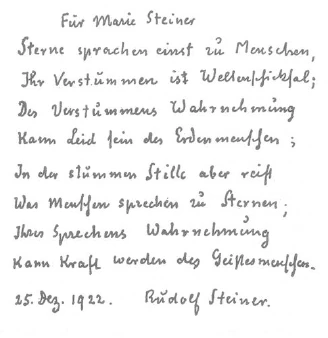 Für Marie Steiner
Sterne sprachen einst zu Menschen,
Ihr Verstummen ist Weltenschicksal;
Des Verstummens Wahrnehmung
Kann Leid sein des Erdenmenschen;
In der stummen Stille aber reift
Was Menschen sprechen zu Sternen;
Ihres Sprechens Wahrnehmung
Kann Kraft werden des Geistesmenschen.
25. Dez. 1922. Rudolf Steiner.